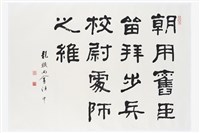 朝用舊臣
笛拜步兵
校尉處師
之維